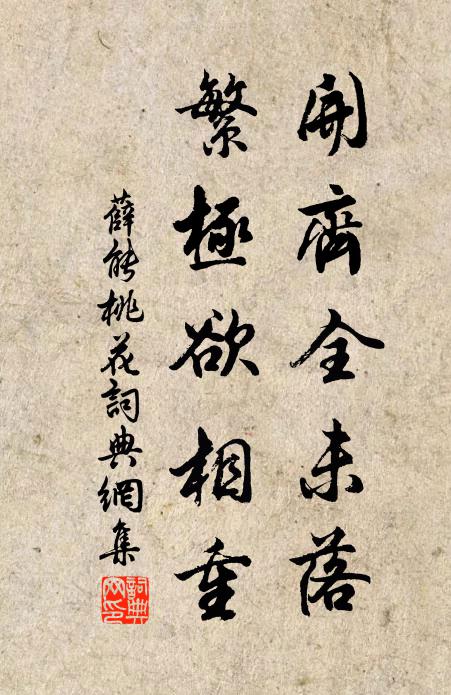 開齊全未落
繁極欲相重
薛能桃花詞典網集
詞典網印